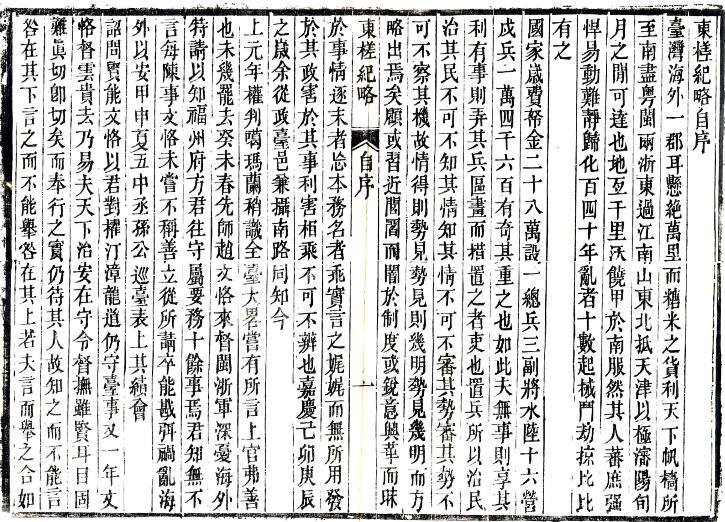 東槎紀略自序
臺灣海外一郡耳懸絶萬里而糖米之貨利天下帆檣所
至南盡粤閩兩浙東過江南山東北抵天津以極瀋陽旬
月之閒可達也地亙千里沃饒甲於南服然其人蕃庶强
悍易動難靜歸化百四十年亂者十數起械鬥劫掠比比
有之
國家歳費帑金二十八萬設一總兵三副將水陸十六營
戍兵一萬四千六百有奇其重之也如此夫無事則享其
利有事則弄其兵區畫而措置之者吏也置兵所以治民
治其民不可不知其情知其情不可不審其勢審其勢不
可不察其機故情得則勢見勢見則幾明勢見幾明而方
略出焉矣顧或習近聞畧而闇於制度或銳意興革而昧
東槎紀略 自序 一
於事情逐末者忘本務名者乖實言之娓娓而無所用發
於其政害於其事利害相乘不可不辨也嘉慶己卯庚辰
之歳余從政臺邑兼攝南路同知今
上元年權判噶瑪蘭稍識全臺大畧嘗有所言上官弗善
也未幾罷去癸未春先師趙文恪來督閩浙軍深憂海外
特請以知福州府方君往守屬要務十餘事焉君知無不
言每陳事文恪未嘗不稱善立從所請卒能戡弭禍亂海
外以安甲申夏五中丞孫公巡臺表上其績會
詔問賢能文恪以君對擢汀漳龍道仍守臺事又一年文
恪督雲貴去乃易夫天下治安在守令督撫雖賢耳目固
難眞切卽切矣而奉行之實仍待其人故知之而不能言
咎在其下言之而不能舉咎在其上若夫言而舉之合如